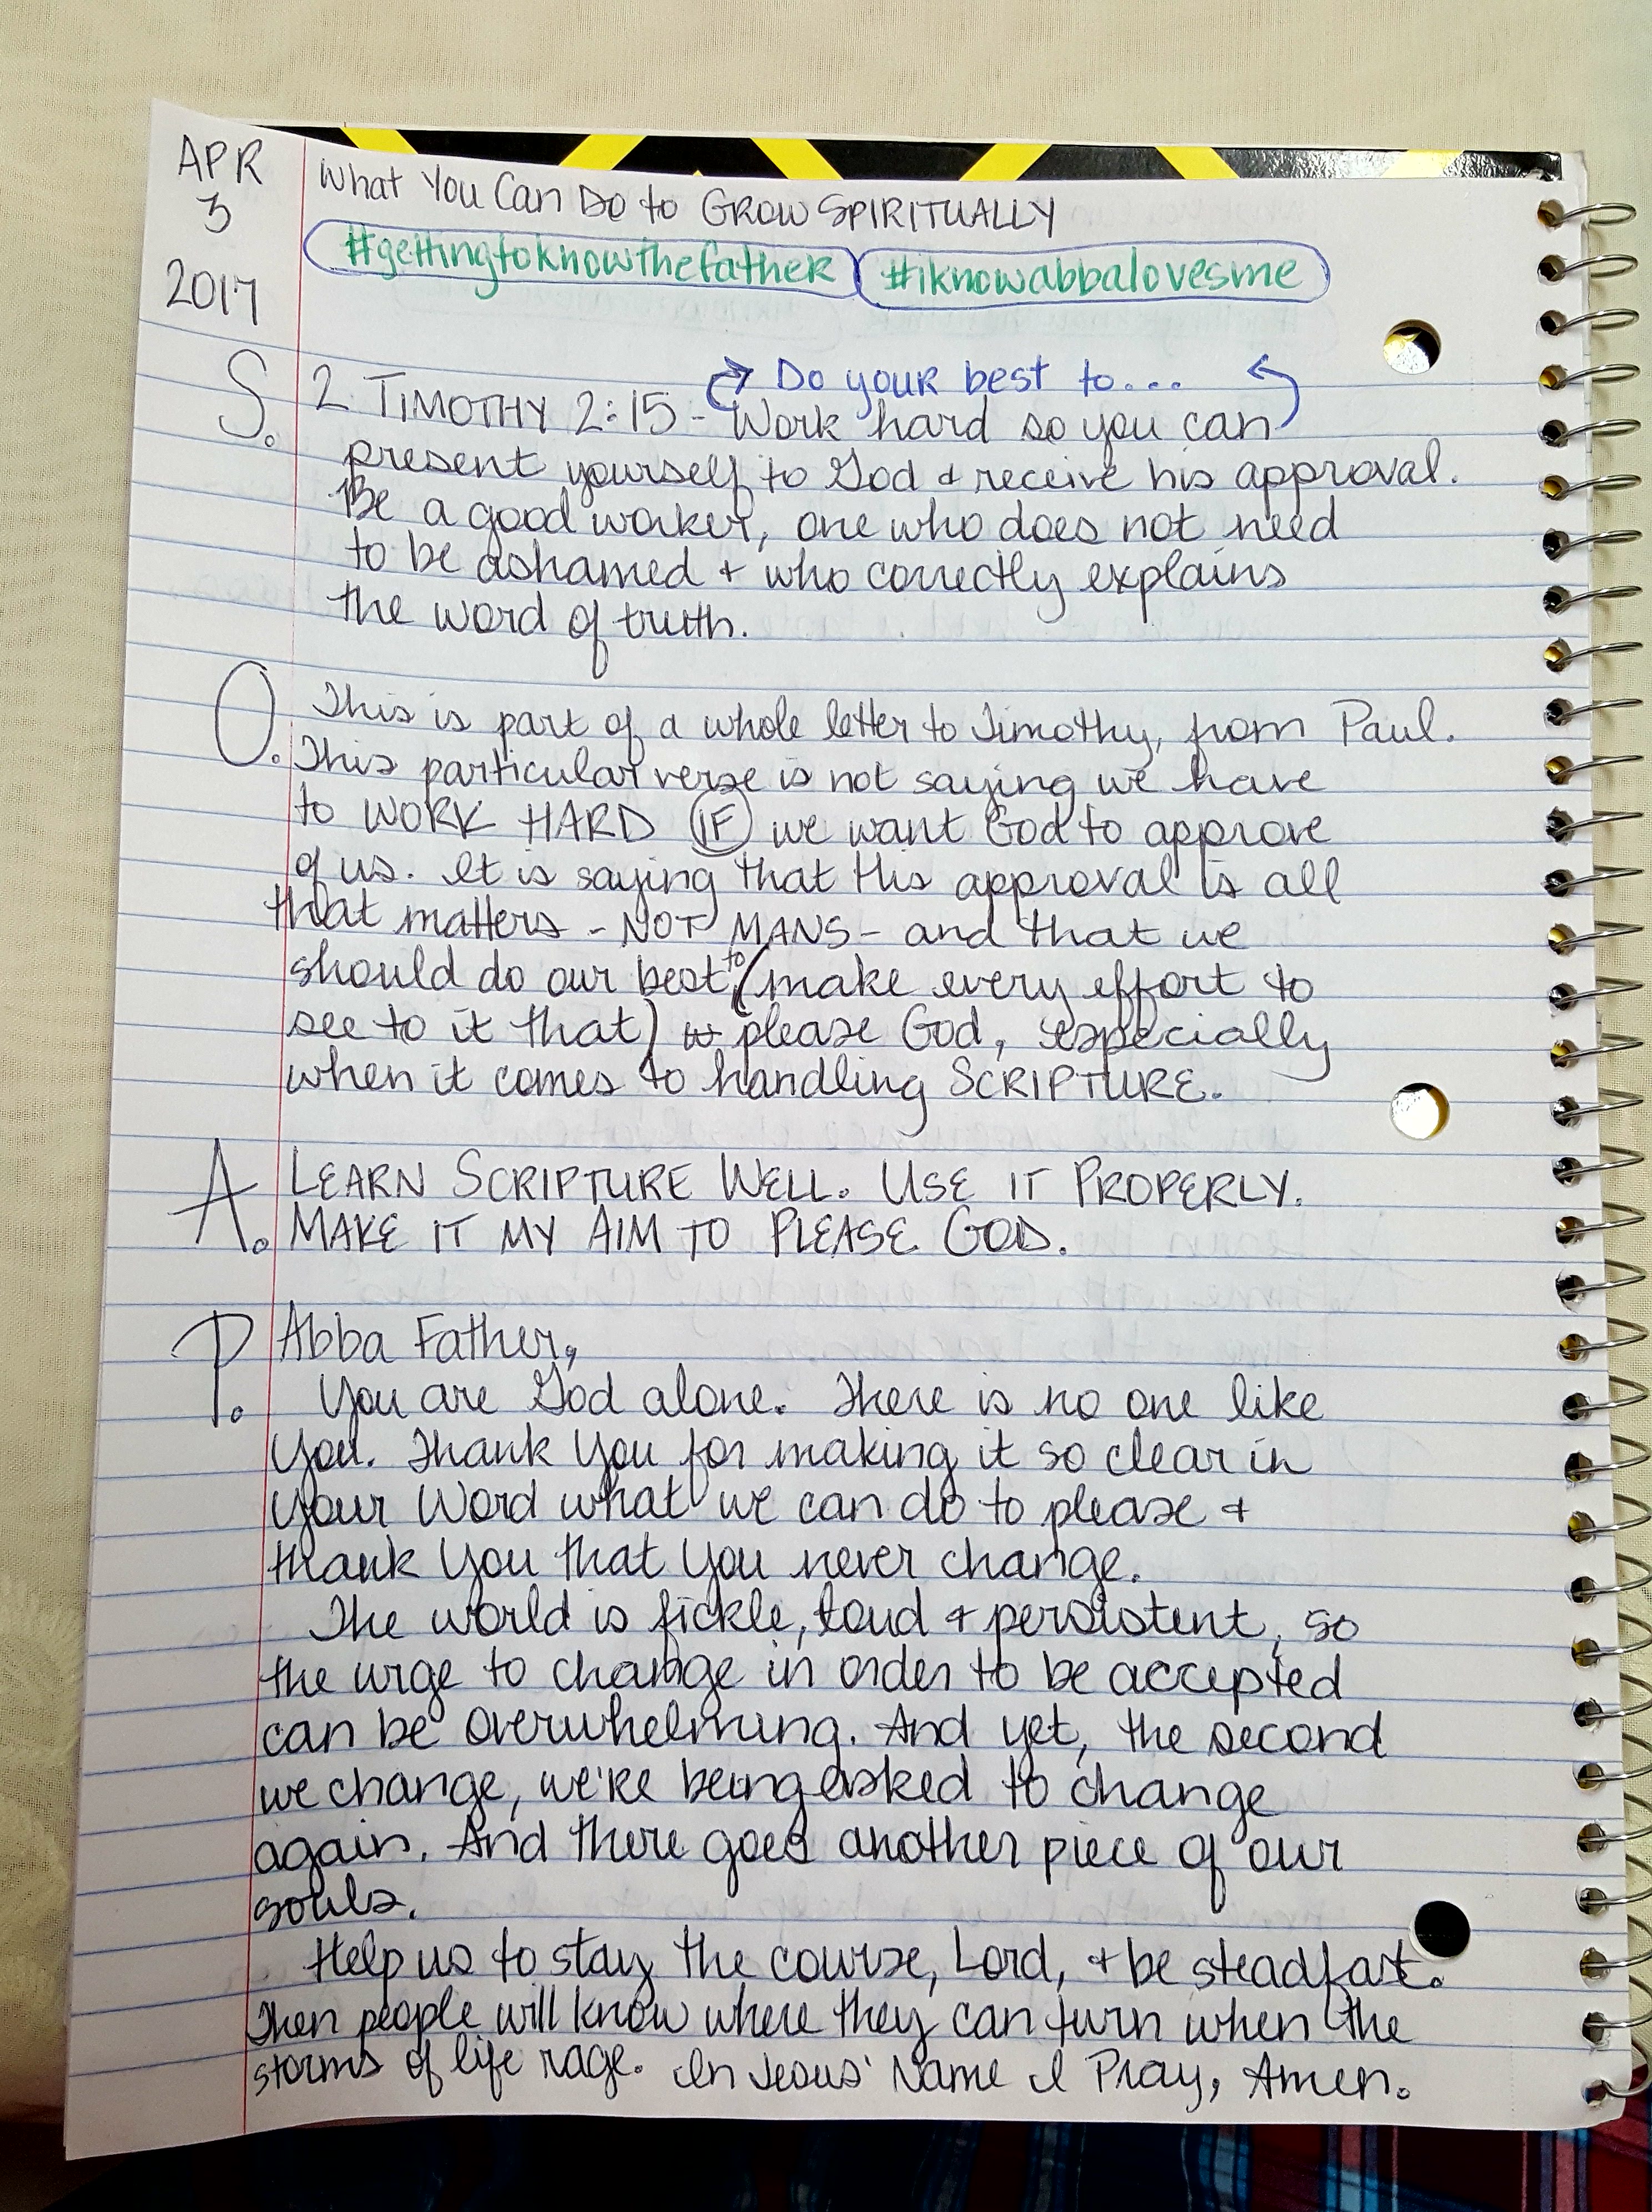 APR
3
2017
What You Can Do to GROW SPIRITUALLY
#gettingtoknowthefather #iknowabbalovesme
Do your best to...
S. 2 TIMOTHY 2:15 - Work hard so you can
present yourself to God & receive his approval.
Be a good worker, one who does not need
to be ashamed & who correctly explains
the word of truth.
O. This is part of a whole letter to Timothy, from Paul.
This particular verse is not saying we have
to WORK HARD IF we want God to approve
of us. It is saying that His approval is all
that matters - NOT MANS - and that we
should do our best to (make every effort to
see to it that) please God, especially
when it comes to handling SCRIPTURE.
A. LEARN SCRIPTURE WELL. USE IT PROPERLY.
MAKE IT MY AIM TO PLEASE GOD.
P. Abba Father,
You are God alone. There is no one like
You. Thank You for making it so clear in
Your Word what we can do to please &
thank You that You never change.
The world is fickle, loud & persistent, so
the urge to change in order to be accepted
can be overwhelming. And yet, the second
we change, we're being asked to change
again. And there goes another piece of our
souls.
Help us to stay the course, Lord, & be steadfast.
Then people will know where they can turn when the
storms of life rage. In Jesus' Name I Pray, Amen.